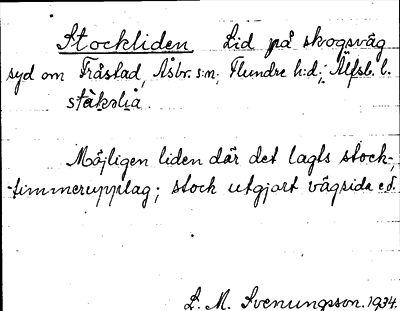 Stockliden Lid på skogsväg
syd om Fråstad, Åsbr. s:n; Flundre h:d; Älfsb. l.
ståkslia.
Möjligen liden där det lagts stock-,
-timmerupplag; stock utgjort vägsida e.d.
L. M. Svenungsson. 1934.